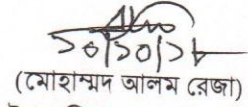 ১০/১০/১৮
(মোহাম্মদ আলম রেজা)